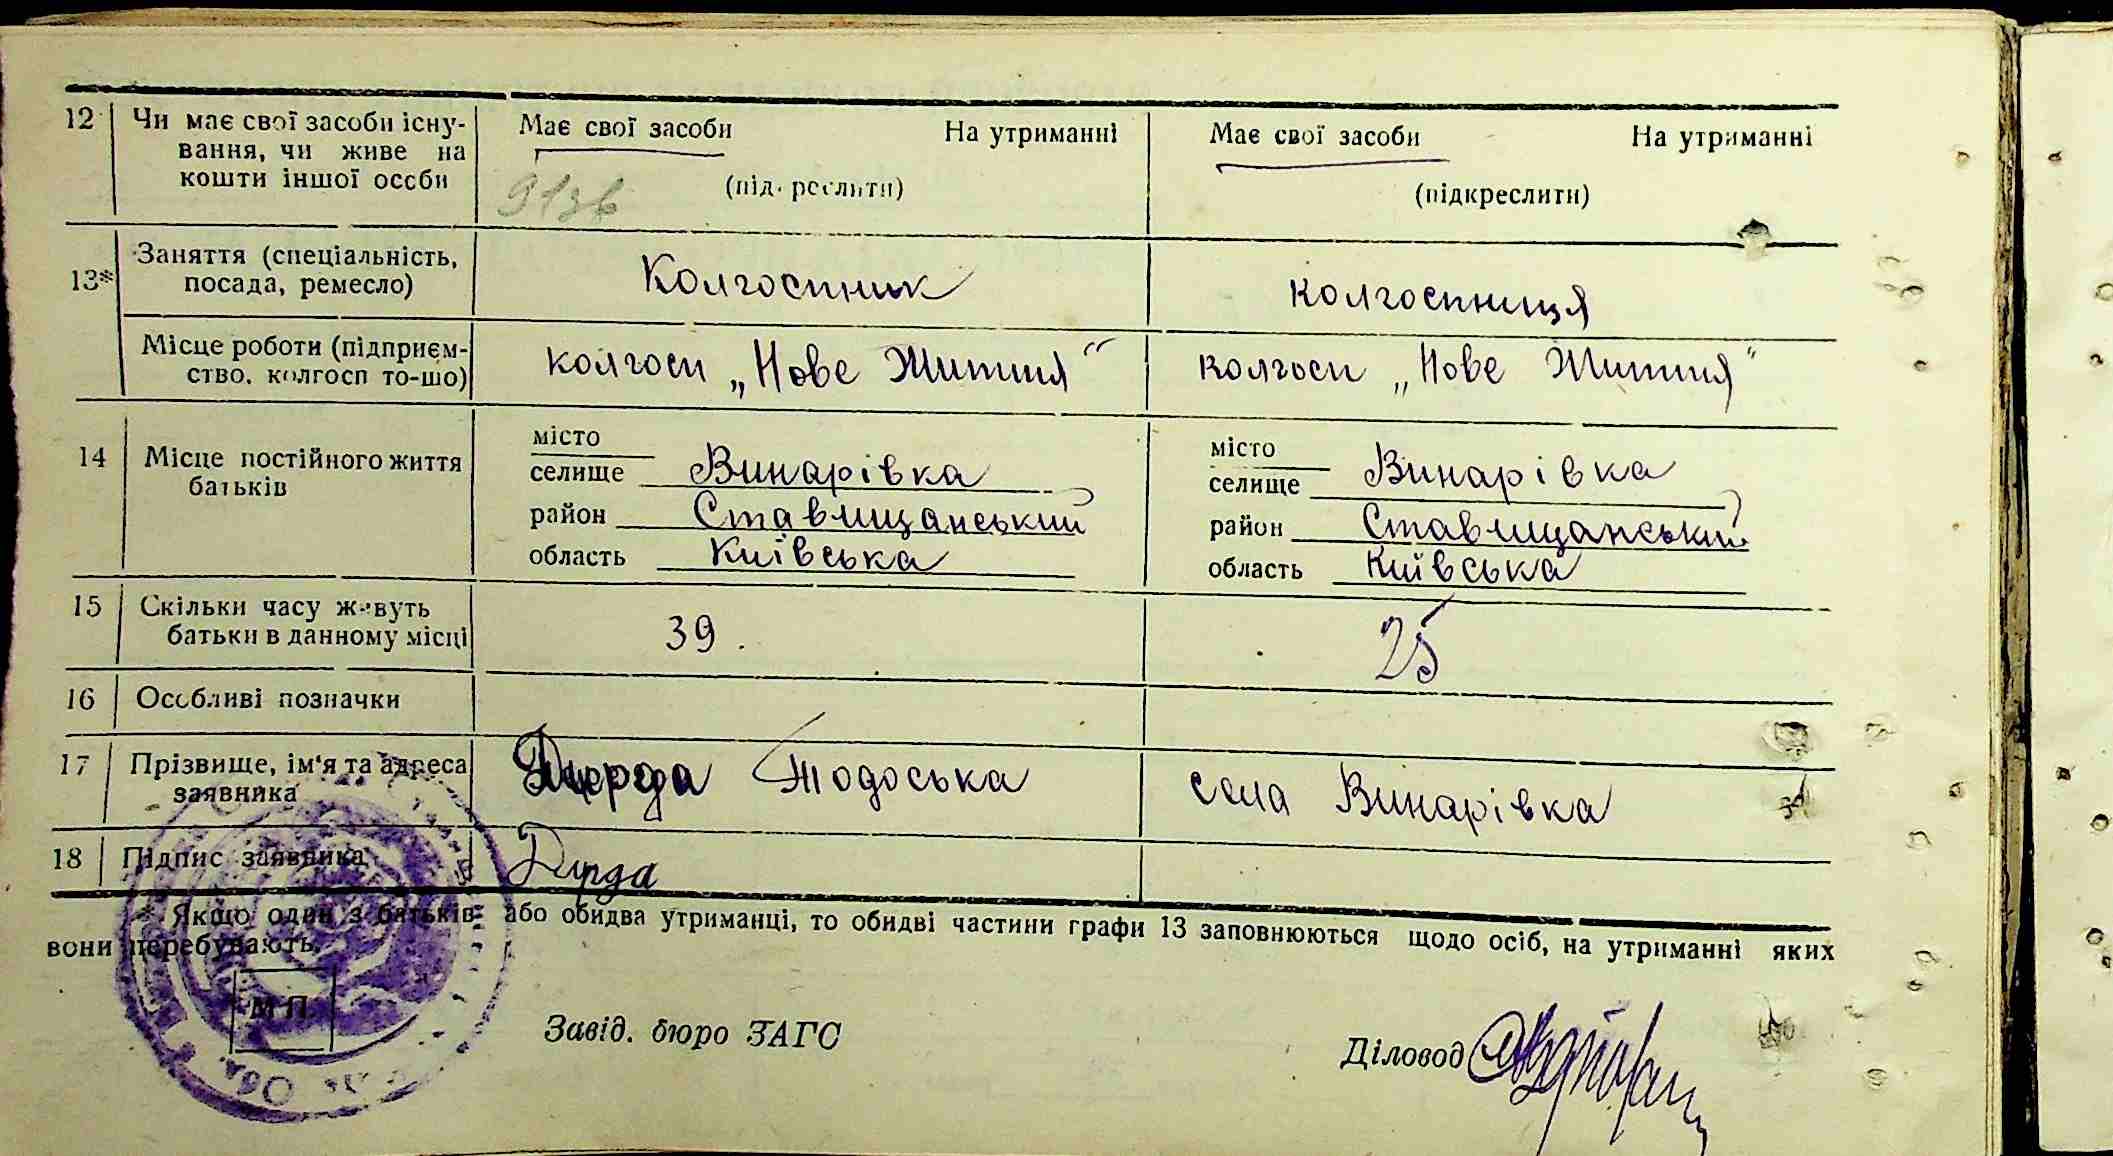 12 Чи має свої засоби існу-
вання, чи живе на
кошти іншої особи
Має свої засоби На утриманні
(підкреслити)
Має свої засоби На утриманні
(підкреслити)
13* Заняття (спеціальність,
посада, ремесло)
Колгоспник
колгоспниця
Місце роботи (підприєм-
ство, колгосп то-що)
колгосп „Нове Життя“
колгосп „Нове Життя“
14 Місце постійного життя
батьків
місто
селище Винарівка
район Ставищанський
область Київська
місто
селище Винарівка
район Ставищанський
область Київська
15 Скільки часу живуть
батьки в данному місці
39.
25
16 Особливі позначки
17 Прізвище, ім'я та адреса
заявника
Дирда Тодоська
села Винарівка
18 Підпис заявника
Дирда
* Якщо один з батьків або обидва утриманці, то обидві частини графи 13 заповнюються щодо осіб, на утриманні яких
вони перебувають.
М П.
Завід. бюро ЗАГС
Діловод